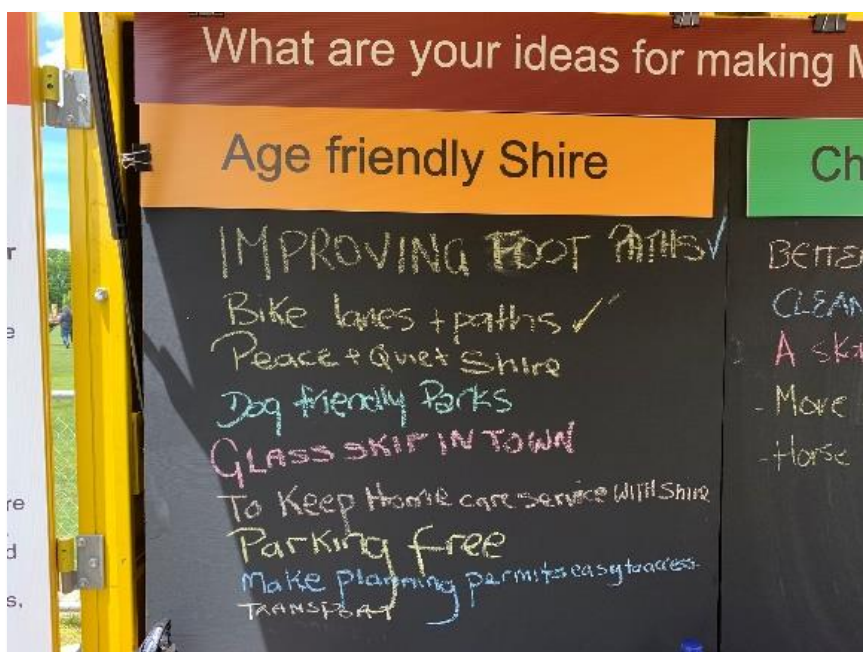 What are your ideas for making M
Age friendly Shire
IMPROVING FOOT PATHS ✓
Bike lanes + paths ✓
Peace + Quiet Shire
Dog friendly Parks
GLASS SKIP IN TOWN
To Keep Home care service WITH Shire
Parking free
Make planning permits easy to access
TRANSPORT
Ch
BETTER
CLEAN
A Ska
- Move
- Horse
r
e
re
d
s.